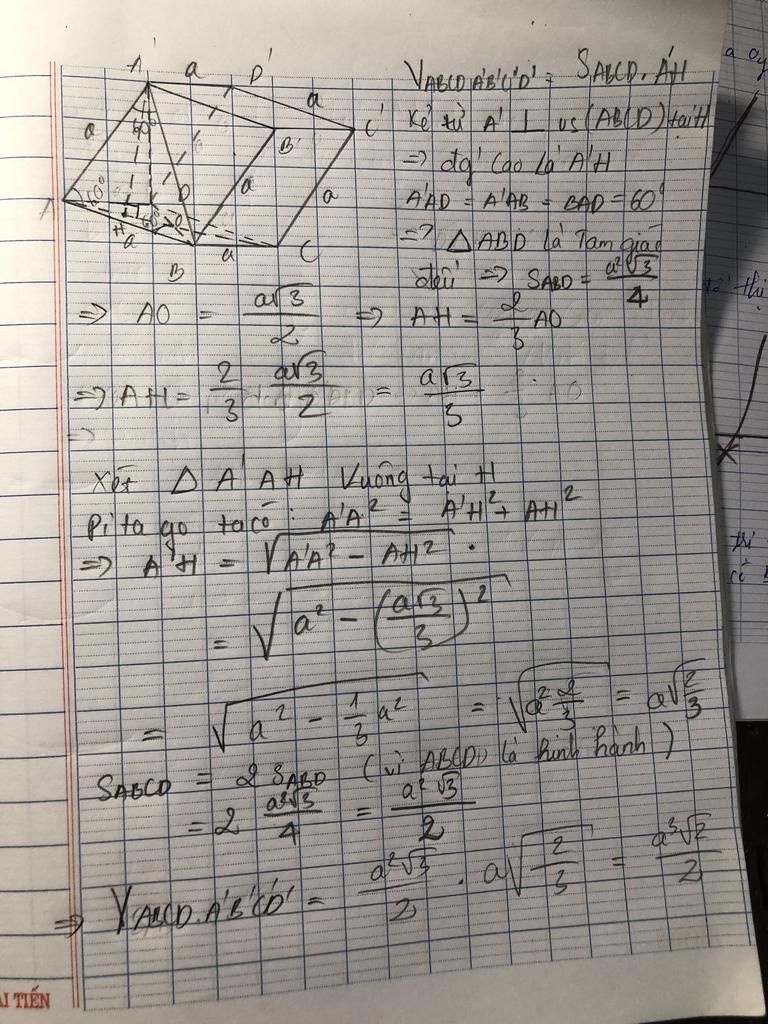 A' a D'
V_ABCD A'B'C'D' = S_ABCD . A'H
a a
Kẻ từ A' ⊥ vs (ABCD) tại H
60° B' C'
=> đg' cao là A'H
a a
A 60° O
A'AD = A'AB = BAD = 60°
H
a a
B C
=> △ ABD là Tam giác
đều => S_ABD = a²√3/4
=> AO = a√3/2 => AH = 2/3 AO
=> AH = 2/3 a√3/2 = a√3/3
=>
Xét △ A'AH Vuông tại H
Pi ta go ta có : A'A² = A'H² + AH²
=> A'H = √(A'A² - AH²) .
= √(a² - (a√3/3)²)
= √(a² - 1/3 a²) = √(a² 2/3) = a√(2/3)
S_ABCD = 2 S_ABD (vì ABCD là hình hành)
= 2 a²√3/4 = a²√3/2
=> V_ABCD.A'B'C'D' = a²√3/2 . a√(2/3) = a³√2/2
AI TIẾN